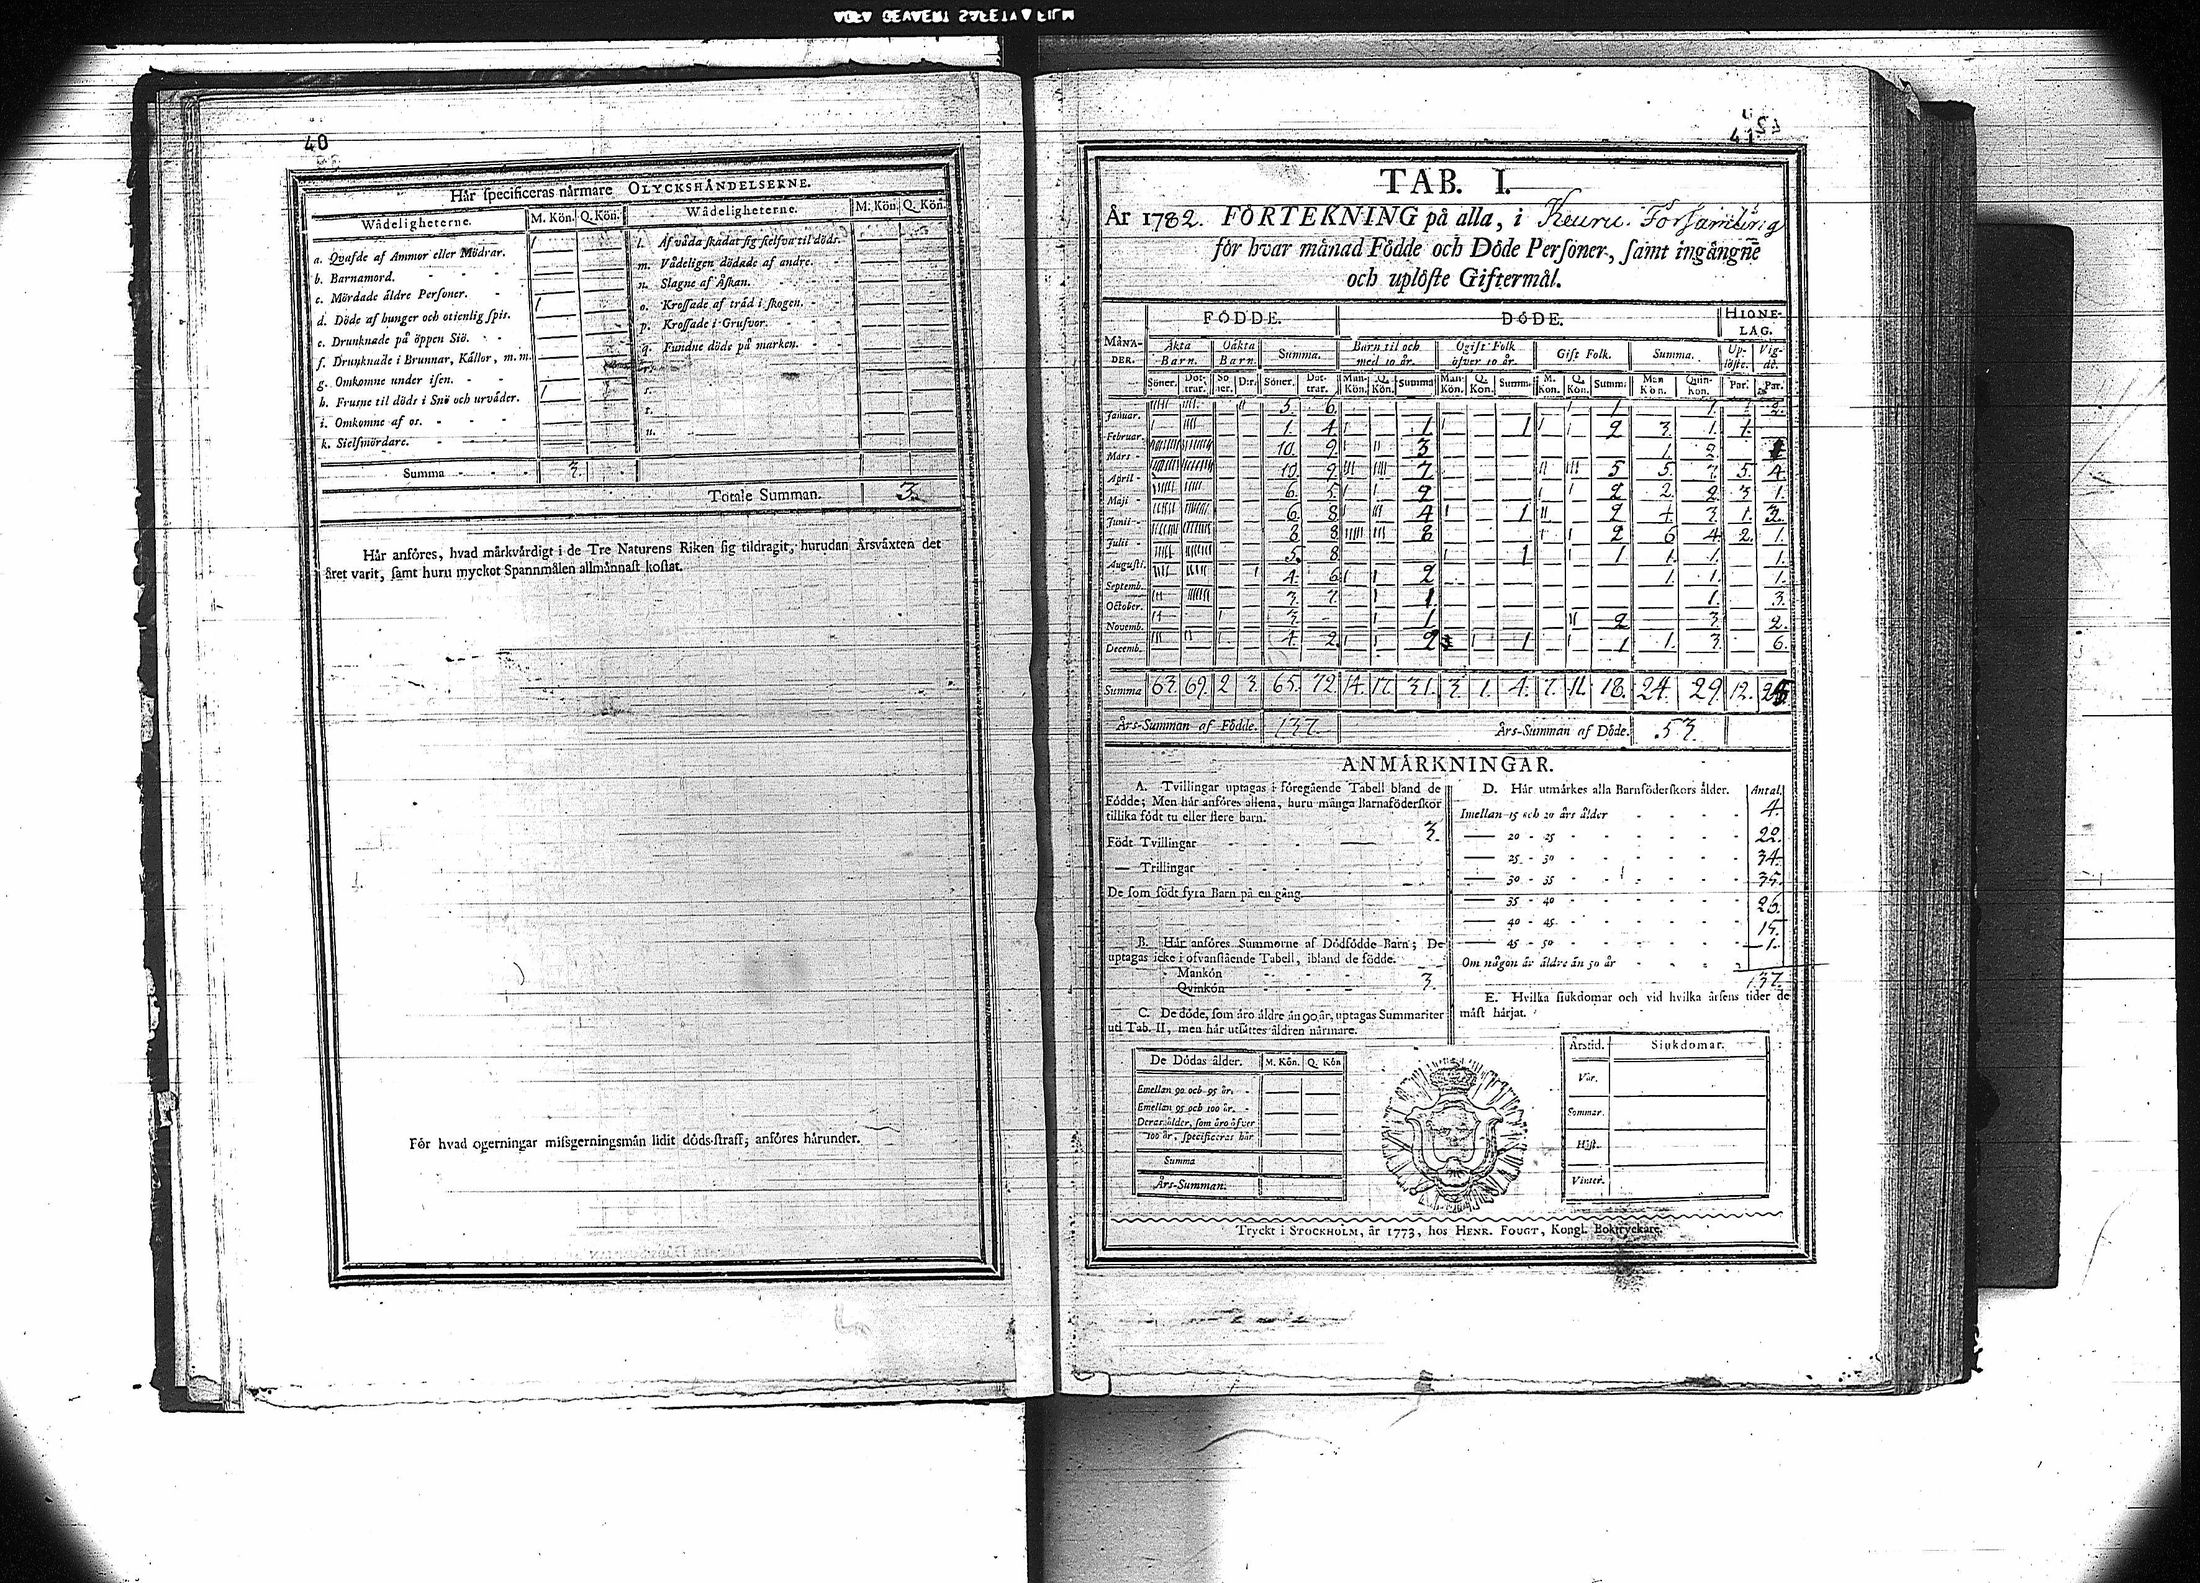 40
Här specificeras närmare OLYCKSHÄNDELSERNE.
Wådeligheterne. M. Kön. Q. Kön. Wådeligheterne. M. Kön. Q. Kön.
a. Qvafde af Ammor eller Mödrar. 1 l. Af våda skadat sig sielfva til döds.
b. Barnamord. m. Vådeligen dödade af andre.
c. Mördade äldre Personer. n. Slagne af Åskan.
d. Döde af hunger och otienlig spis. 1 o. Krossade af träd i skogen.
e. Drunknade på öppen Siö. p. Krossade i Grufvor.
f. Drunknade i Brunnar, Källor, m. m. q. Fundne döde på marken.
g. Omkomne under isen. r.
h. Frusne til döds i Snö och urväder. 1 s.
i. Omkomne af os. t.
k. Sielfmördare. u.
Summa 3.
Totale Summan. 3.
Här anföres, hvad märkvärdigt i de Tre Naturens Riken sig tildragit, hurudan Årsväxten det
året varit, samt huru myckot Spannmålen allmännast kostat.
För hvad ogerningar missgerningsmän lidit döds-straff, anföres härunder.
41
TAB. I.
År 1782. FÖRTEKNING på alla, i Keuru Församling
för hvar månad Födde och Döde Personer, samt ingångne
och uplöste Giftermål.
FÖDDE. DÖDE. HIONELAG.
MÅNADER. Äkta Barn. Oäkta Barn. Summa. Barn til och med 10 år. Ogift Folk öfver 10 år. Gift Folk. Summa. Uplöste. Vigde.
Söner. Döttrar. Söner. D:r. Söner. Döttrar. Mankön. Q. Kön. Summa Mankön. Q. Kön. Summ. M. Kön. Q. Kön. Summ. Man Kön. Quinkön. Par. Par.
Januar. 5. 6. 1 1.
Februar. 1. 4. 1 1 2 3. 1. 1.
Mars 10. 9. 3 1. 2.
April 10. 9. 7 5 5. 7. 5. 4.
Maji 6. 5. 2 2 2. 2 3 1.
Junii 6. 8 4 1 2 4. 3. 1.
Julii 8 8 8 2 6 4. 2. 1.
Augusti. 5. 8 1 1 1. 1. 1.
Septemb. 4. 6. 2 1. 1. 1.
October. 3. 7. 1 1. 3.
Novemb. 3. 1 2 3. 2.
Decemb. 4. 2. 2 1 1 1. 3. 6.
Summa 63. 69. 2 3. 65. 72. 14. 17. 31. 3 1. 4. 7. 11. 18. 24. 29. 12.
Års-Summan af Födde. 137. Års-Summan af Döde. 53.
ANMÄRKNINGAR.
A. Tvillingar uptagas i föregående Tabell bland de
Födde; Men här anföres allena, huru många Barnaföderskor
tillika födt tu eller flere barn.
Födt Tvillingar 3.
— Trillingar
De som födt fyra Barn på en gång.
B. Här anföres Summorne af Dödfödde Barn; De
uptagas icke i ofvanstående Tabell, ibland de födde.
Mankön
Qvinkön 3.
C. De döde, som äro äldre än 90 år, uptagas Summariter
uti Tab. II, men här utsättes åldren närmare.
De Dödas ålder. M. Kön. Q. Kön
Emellan 90 och 95 år.
Emellan 95 och 100 år.
Deras ålder, som äro öfver
100 år, specificeras här
Summa
Års-Summan.
D. Här utmärkes alla Barnföderskors ålder. Antal.
Imellan 15 och 20 års ålder 4.
— 20 - 25 22.
— 25 - 30 34.
— 30 - 35 35.
— 35 - 40 26.
— 40 - 45 15.
— 45 - 50 1.
Om någon är äldre än 50 år
137.
E. Hvilka siukdomar och vid hvilka årsens tider de
mäst härjat.
Årstid. Siukdomar.
Vår.
Sommar.
Höst.
Vinter.
Tryckt i STOCKHOLM, år 1773, hos HENR. FOUGT, Kongl. Boktryckare.